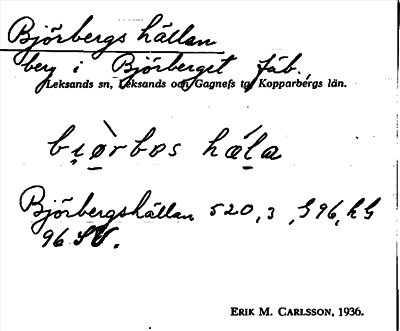 Björbergs hällan
berg i Björberget fäb.
Leksands sn, Leksands och Gagnefs tg, Kopparbergs län.
bı̯ø̀rbos hǽla
Björbergshällan 520,3, G96, h G
96 SV.
ERIK M. CARLSSON, 1936.